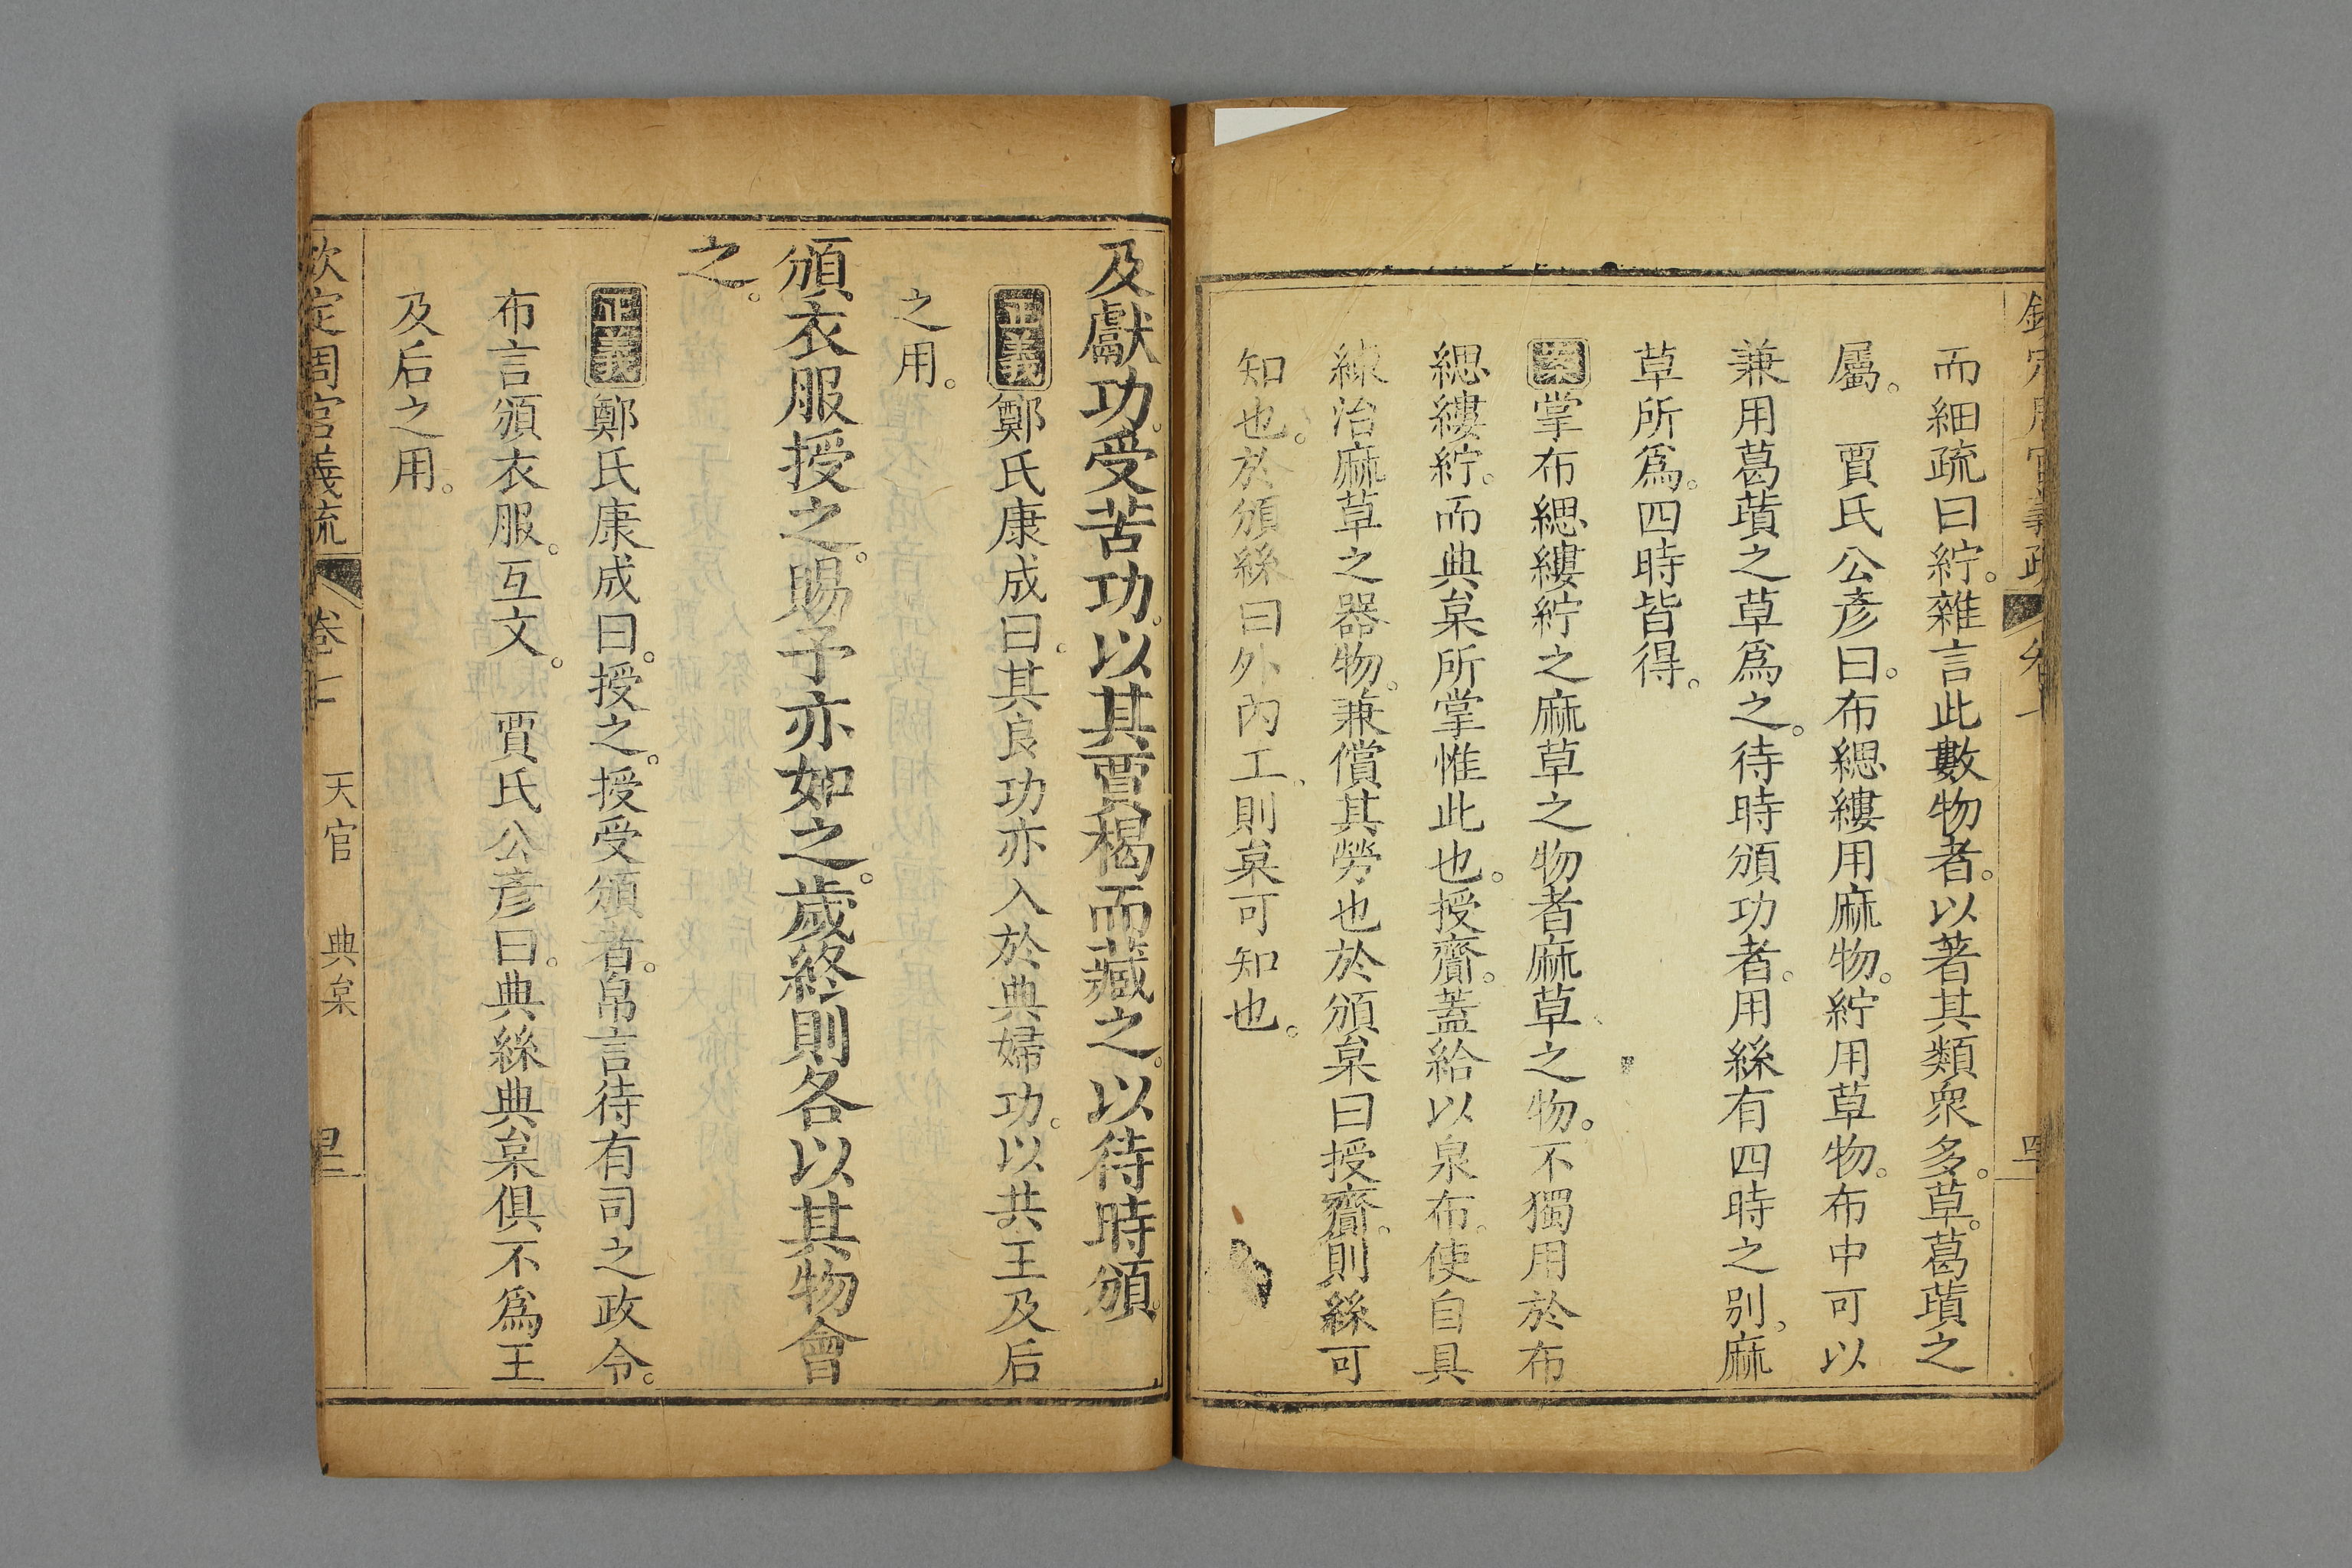 而細疏曰紵。雜言此數物者。以著其類衆多。草。葛䔛之
屬。　賈氏公彥曰。布緦縷用麻物。紵用草物。布中可以
兼用葛䔛之草爲之。待時頒功者。用絲有四時之别。麻
草所爲。四時皆得。
案掌布緦縷紵之麻草之物者麻草之物。不獨用於布
緦縷紵。而典枲所掌惟此也。授齎。蓋給以泉布。使自具
練治麻草之器物。兼償其勞也於頒枲曰授齎。則絲可
知也。於頒絲曰外內工。則枲可知也。
及獻功。受苦功。以其賈楬而藏之。以待時頒。
正義鄭氏康成曰。其良功亦入於典婦功。以共王及后
之用。
頒衣服授之。賜予亦如之。歲終則各以其物會
之。
正義鄭氏康成曰。授之。授受頒者。帛言待有司之政令。
布言頒衣服。互文。　賈氏公彥曰。典絲典枲俱不爲王
及后之用。
欽定周官義疏　卷七　天官　典枲